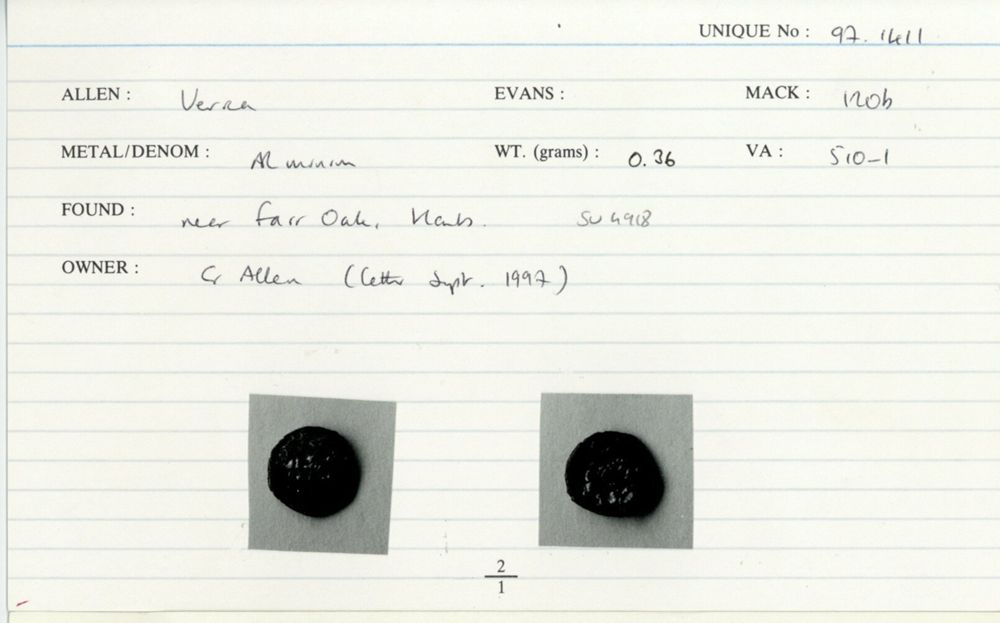 UNIQUE No : 97. 1411
ALLEN : Verica EVANS : MACK : 120b
METAL/DENOM : AR minim WT. (grams) : 0.36 VA : 510-1
FOUND : near Fair Oak, Hants. SU 4918
OWNER : G Allen (letter Sept. 1997)
2
1